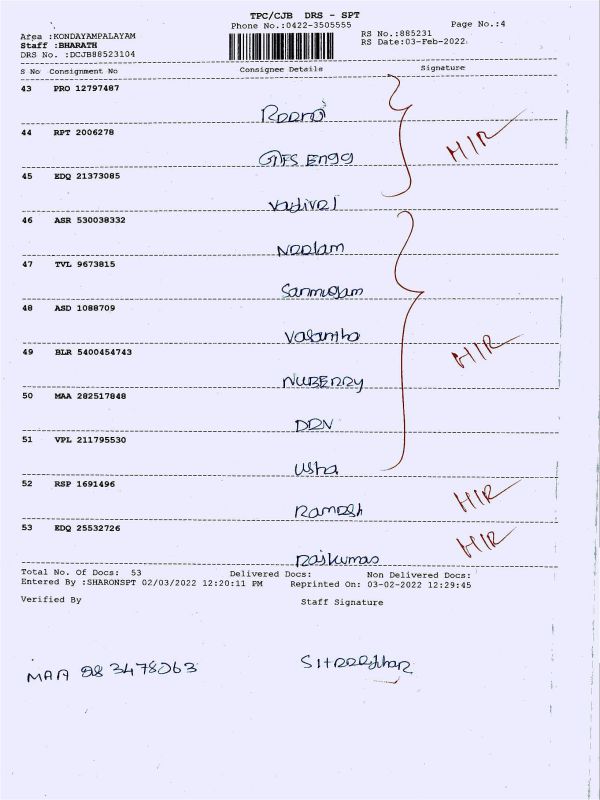 TPC/CJB DRS - SPT
Phone No.:0422-3505555
Page No.:4
Area :KONDAYAMPALAYAM
RS No.:885231
Staff :BHARATH
RS Date:03-Feb-2022
DRS No. :DCJB88523104
S No Consignment No Consignee Details Signature
43 PRO 12797487
44 RPT 2006278
GTFS Engg
H/R
45 EDQ 21373085
Vadivel
46 ASR 530038332
Neelam
47 TVL 9673815
Sanmugam
48 ASD 1088709
Vasantha
49 BLR 5400454743
H/R
NUBERRY
50 MAA 282517848
51 VPL 211795530
Usha
52 RSP 1691496
Ramesh
H/R
53 EDQ 25532726
Rajkumar
H/R
Total No. Of Docs: 53 Delivered Docs: Non Delivered Docs:
Entered By :SHARONSPT 02/03/2022 12:20:11 PM Reprinted On: 03-02-2022 12:29:45
Verified By Staff Signature
MAA 983478063